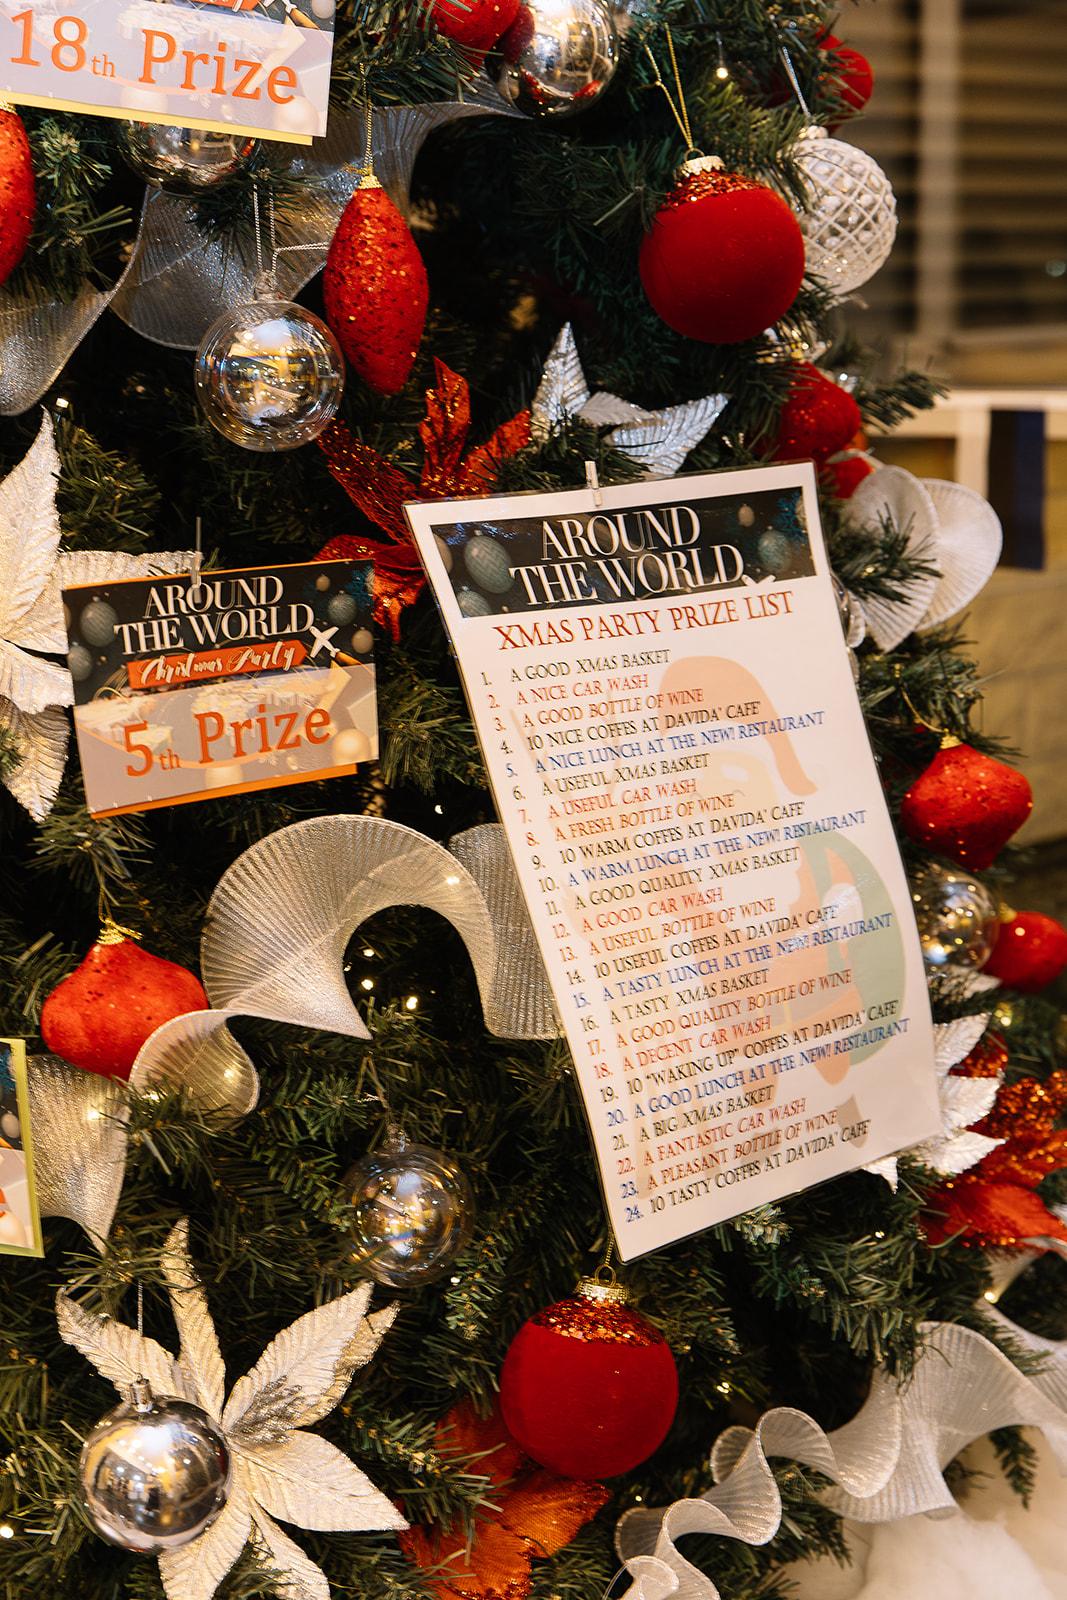 18th Prize
AROUND
THE WORLD
Christmas Party
5th Prize
AROUND
THE WORLD
XMAS PARTY PRIZE LIST
1. A GOOD XMAS BASKET
2. A NICE CAR WASH
3. A GOOD BOTTLE OF WINE
4. 10 NICE COFFES AT DAVIDA' CAFE'
5. A NICE LUNCH AT THE NEW! RESTAURANT
6. A USEFUL XMAS BASKET
7. A USEFUL CAR WASH
8. A FRESH BOTTLE OF WINE
9. 10 WARM COFFES AT DAVIDA' CAFE'
10. A WARM LUNCH AT THE NEW! RESTAURANT
11. A GOOD QUALITY XMAS BASKET
12. A GOOD CAR WASH
13. A USEFUL BOTTLE OF WINE
14. 10 USEFUL COFFES AT DAVIDA' CAFE'
15. A TASTY LUNCH AT THE NEW! RESTAURANT
16. A TASTY XMAS BASKET
17. A GOOD QUALITY BOTTLE OF WINE
18. A DECENT CAR WASH
19. 10 "WAKING UP" COFFES AT DAVIDA' CAFE'
20. A GOOD LUNCH AT THE NEW! RESTAURANT
21. A BIG XMAS BASKET
22. A FANTASTIC CAR WASH
23. A PLEASANT BOTTLE OF WINE
24. 10 TASTY COFFES AT DAVIDA' CAFE'